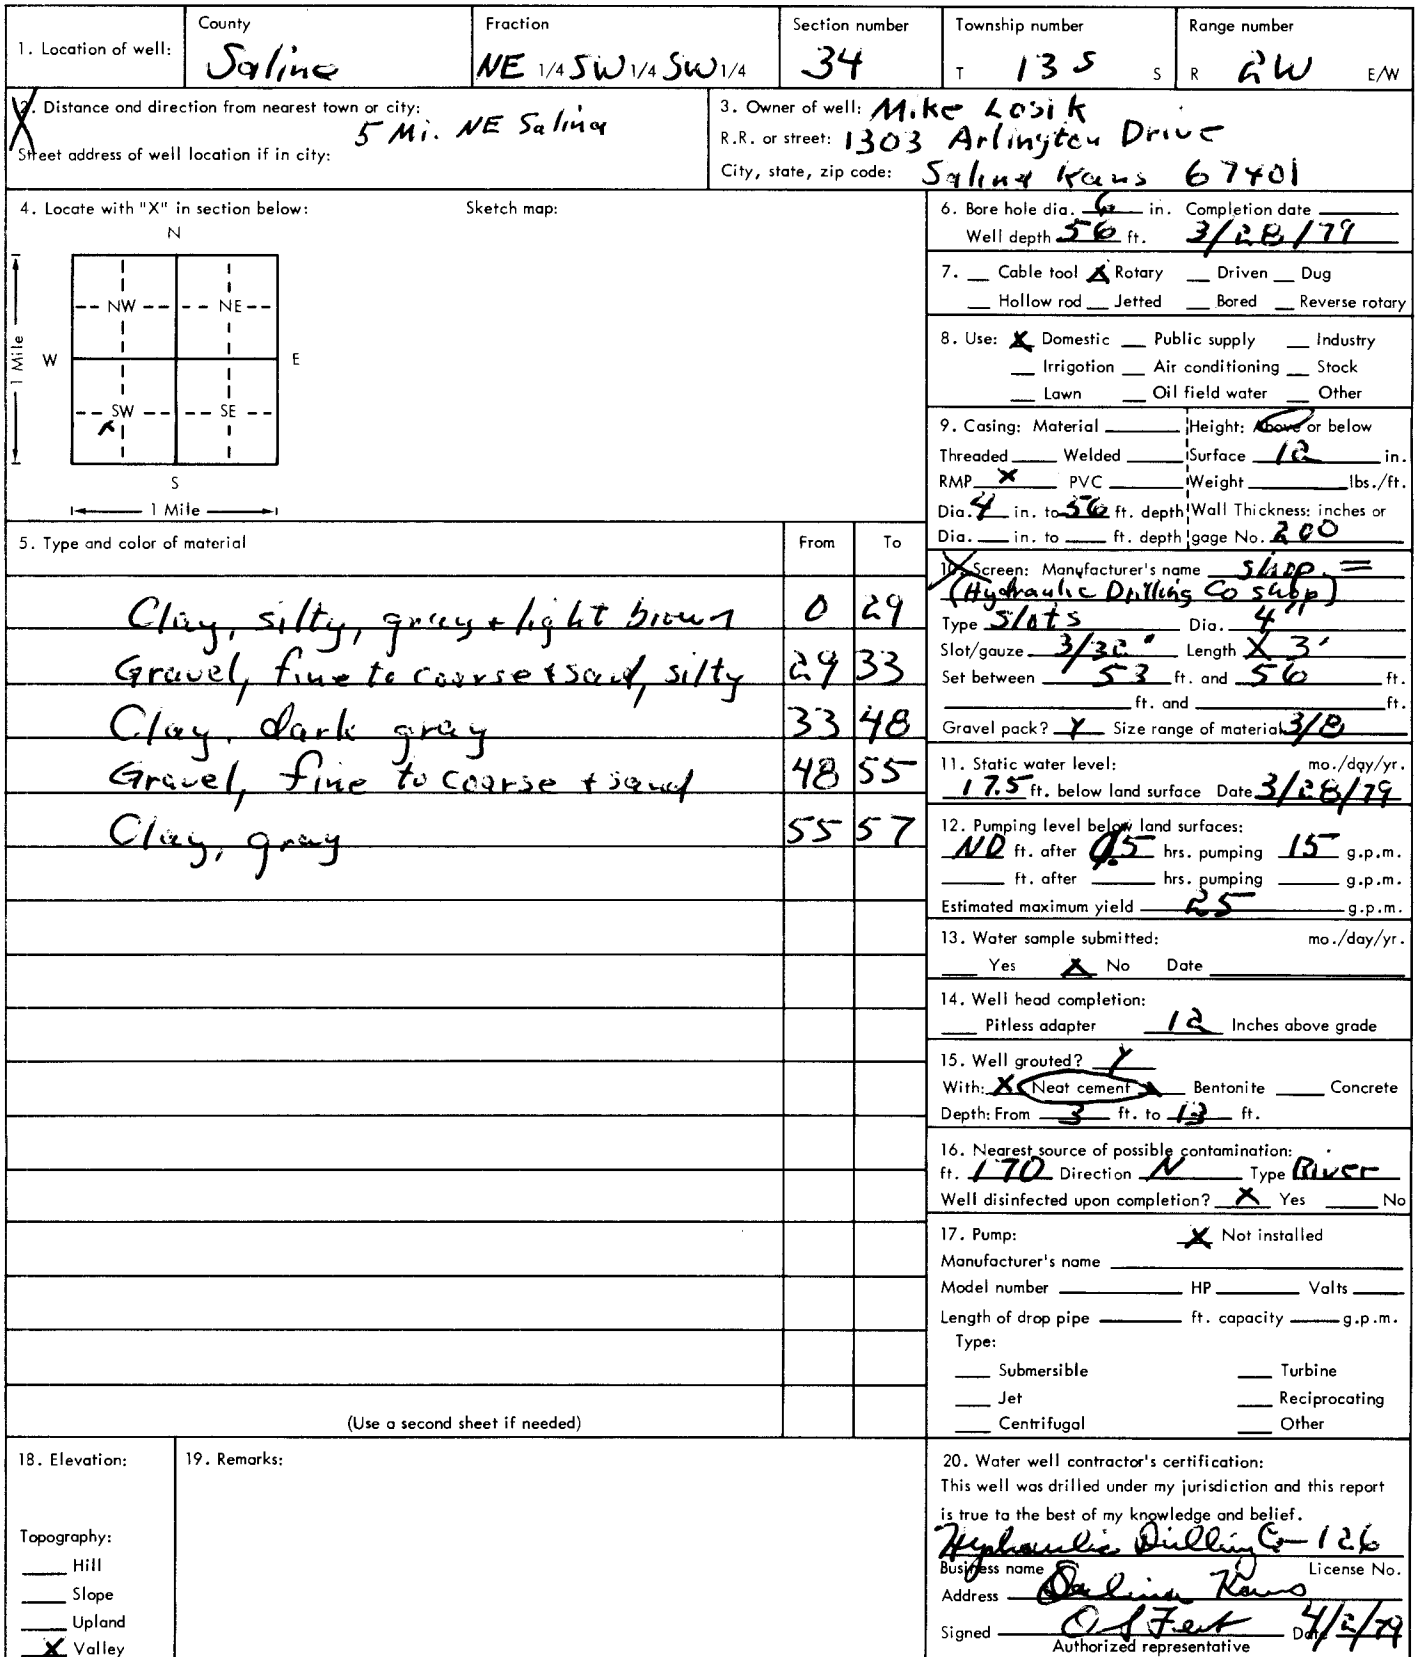 1. Location of well:
County
Saline
Fraction
NE 1/4 SW 1/4 SW 1/4
Section number
34
Township number
T 13 S S
Range number
R 2W E/W
2. Distance and direction from nearest town or city:
5 Mi. NE Salina
Street address of well location if in city:
3. Owner of well: Mike Losik
R.R. or street: 1303 Arlington Drive
City, state, zip code: Salina Kans 67401
4. Locate with "X" in section below:
Sketch map:
N
NW NE
W E
SW SE
S
1 Mile
1 Mile
5. Type and color of material From To
Clay, silty, gray + light brown 0 29
Gravel, fine to coarse + sand, silty 29 33
Clay, dark gray 33 48
Gravel, fine to coarse + sand 48 55
Clay, gray 55 57
(Use a second sheet if needed)
6. Bore hole dia. 6 in. Completion date
Well depth 56 ft. 3/28/79
7. Cable tool X Rotary Driven Dug
Hollow rod Jetted Bored Reverse rotary
8. Use: X Domestic Public supply Industry
Irrigation Air conditioning Stock
Lawn Oil field water Other
9. Casing: Material Height: Above or below
Threaded Welded Surface 12 in.
RMP X PVC Weight lbs./ft.
Dia. 4 in. to 56 ft. depth Wall Thickness: inches or
Dia. in. to ft. depth gage No. 200
10. Screen: Manufacturer's name shop =
(Hydraulic Drilling Co shop)
Type Slots Dia. 4"
Slot/gauze 3/32" Length X 3'
Set between 53 ft. and 56 ft.
ft. and ft.
Gravel pack? Y Size range of material 3/8
11. Static water level: mo./day/yr.
17.5 ft. below land surface Date 3/28/79
12. Pumping level below land surfaces:
ND ft. after 0.5 hrs. pumping 15 g.p.m.
ft. after hrs. pumping g.p.m.
Estimated maximum yield 25 g.p.m.
13. Water sample submitted: mo./day/yr.
Yes X No Date
14. Well head completion:
Pitless adapter 12 Inches above grade
15. Well grouted? Y
With: X Neat cement Bentonite Concrete
Depth: From 3 ft. to 13 ft.
16. Nearest source of possible contamination:
ft. 170 Direction N Type River
Well disinfected upon completion? X Yes No
17. Pump: X Not installed
Manufacturer's name
Model number HP Valts
Length of drop pipe ft. capacity g.p.m.
Type:
Submersible Turbine
Jet Reciprocating
Centrifugal Other
18. Elevation:
Topography:
Hill
Slope
Upland
X Valley
19. Remarks:
20. Water well contractor's certification:
This well was drilled under my jurisdiction and this report
is true to the best of my knowledge and belief.
Hydraulic Drilling Co 126
Business name License No.
Address Salina Kans
Signed Date 4/2/79
Authorized representative